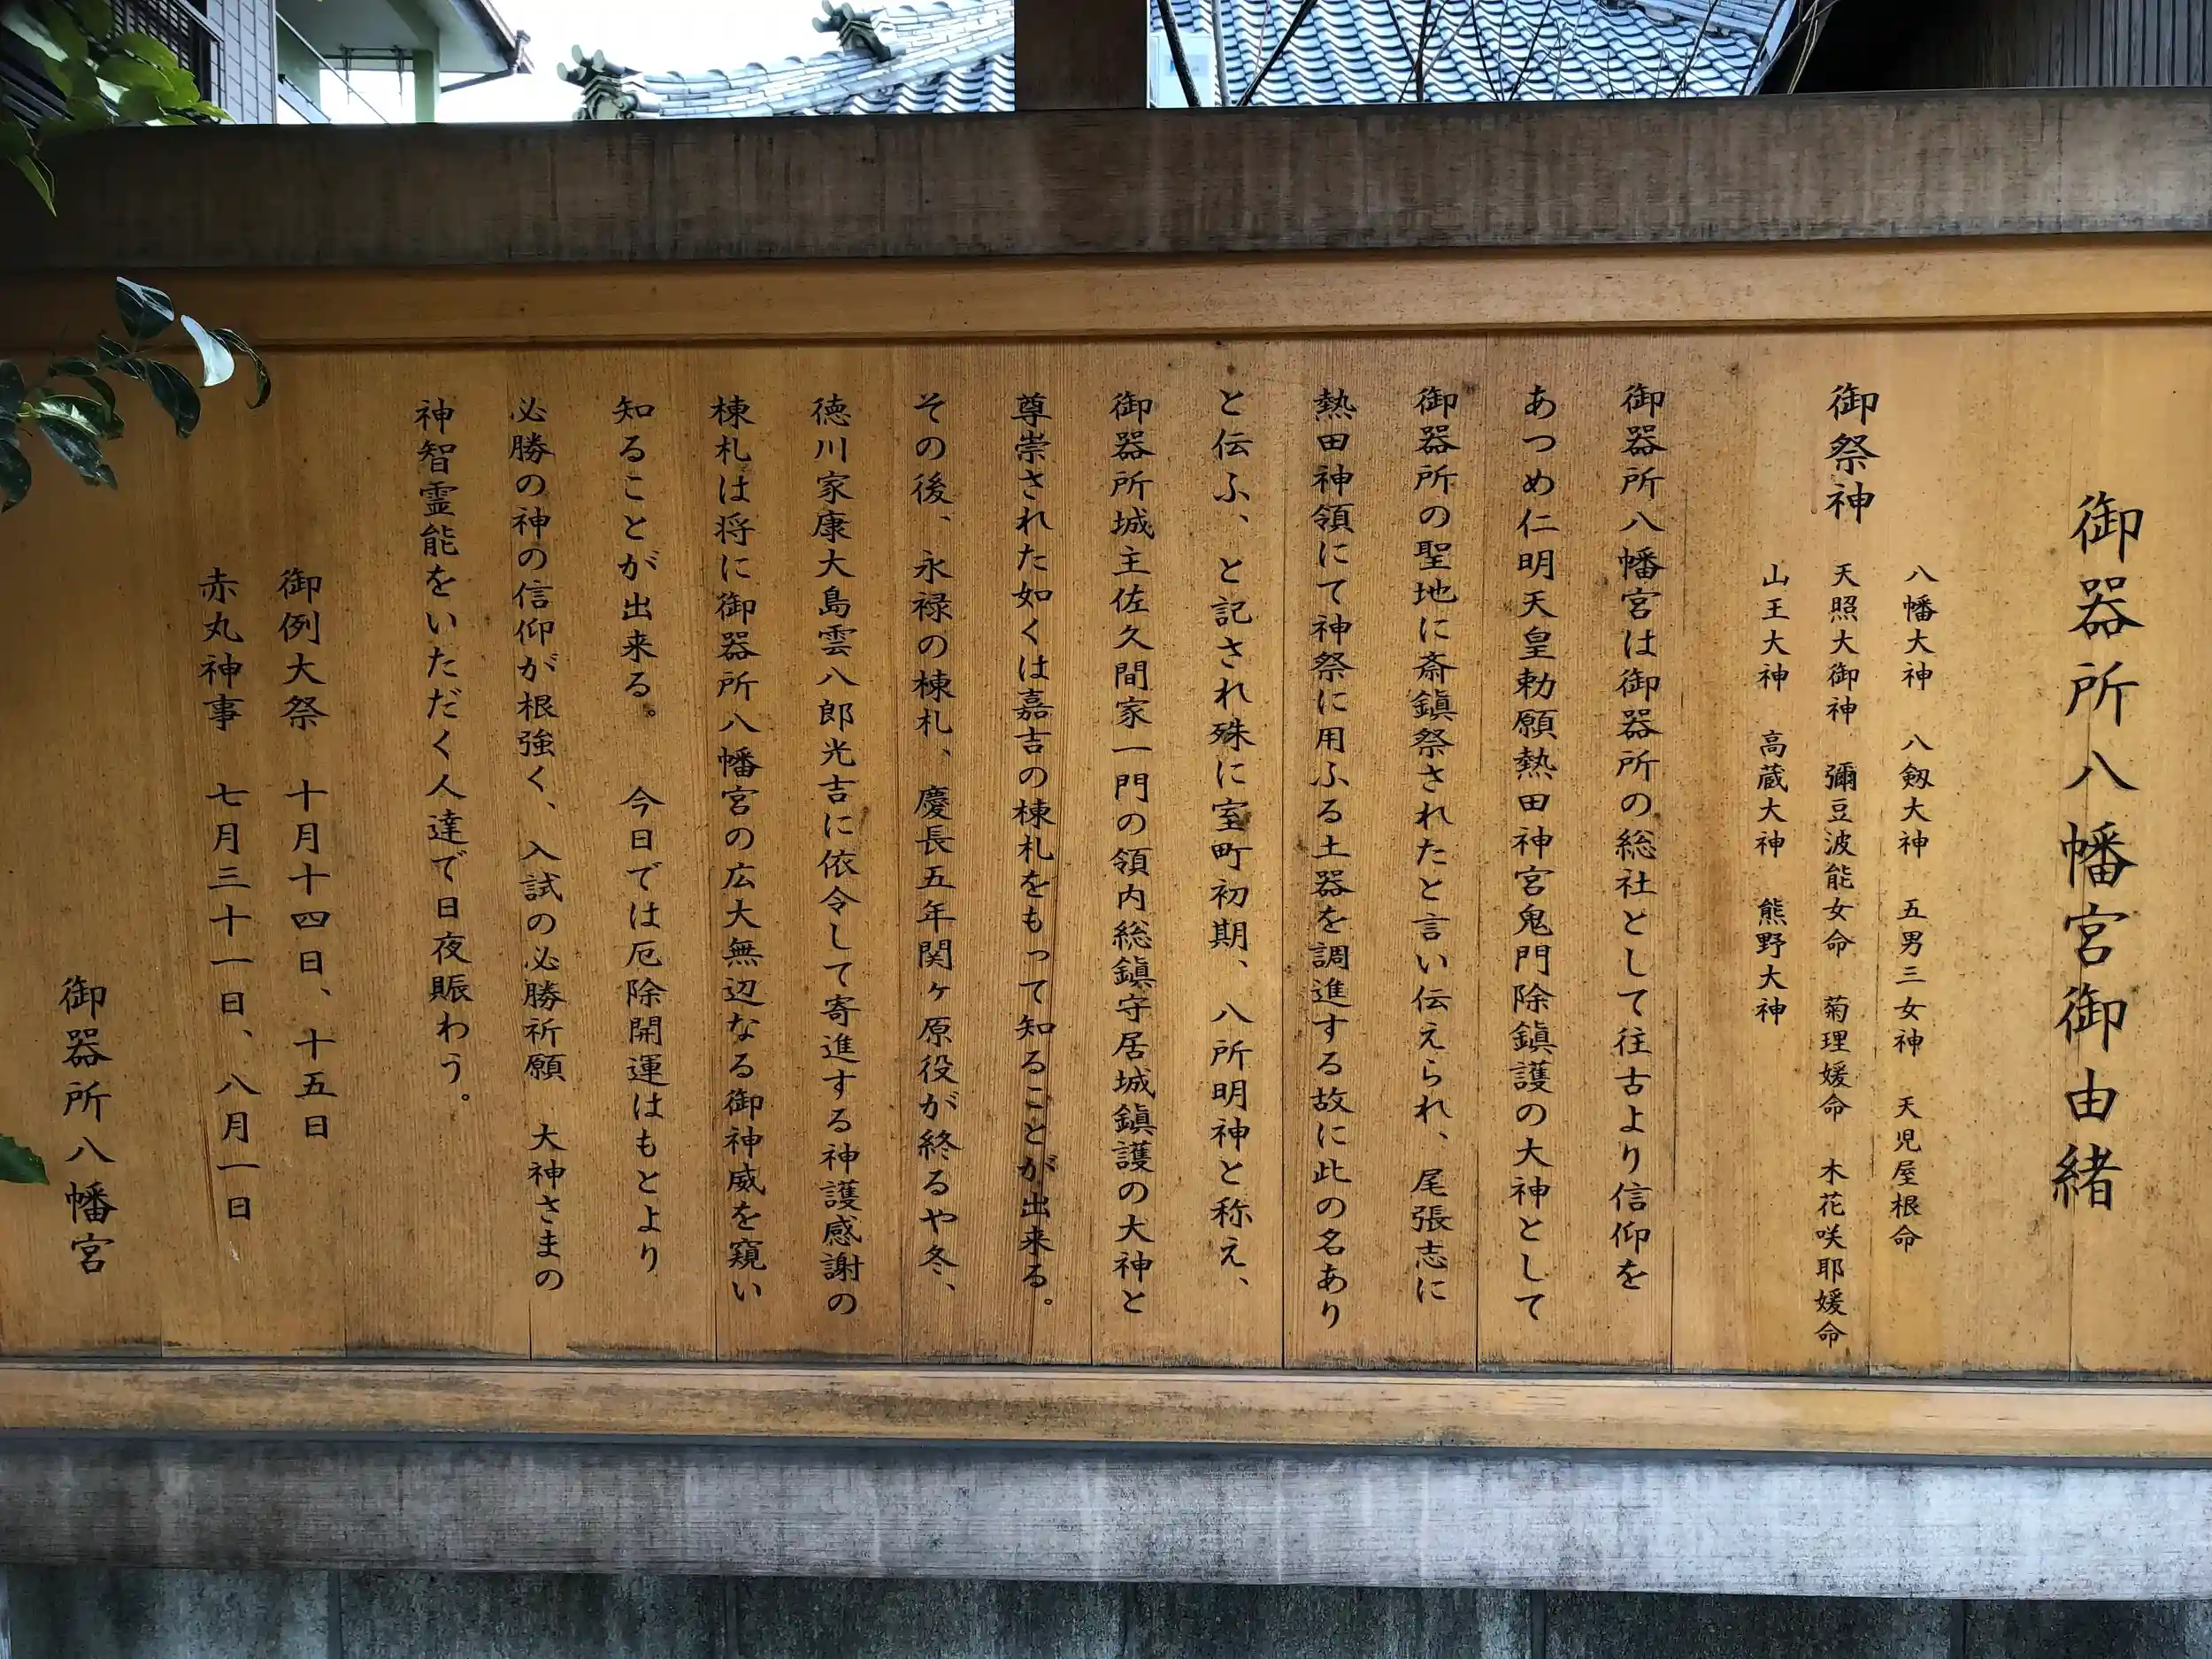 御器所八幡宮御由緒
御祭神
八幡大神　八剱大神　五男三女神　天児屋根命
天照大御神　彌豆波能女命　菊理媛命　木花咲耶媛命
山王大神　高蔵大神　熊野大神
御器所八幡宮は御器所の総社として往古より信仰を
あつめ仁明天皇勅願熱田神宮鬼門除鎭護の大神として
御器所の聖地に斎鎭祭されたと言い伝えられ、尾張志に
熱田神領にて神祭に用ふる土器を調進する故に此の名あり
と伝ふ、と記され殊に室町初期、八所明神と称え、
御器所城主佐久間家一門の領内総鎭守居城鎭護の大神と
尊崇された如くは嘉吉の棟札をもって知ることが出来る。
その後、永禄の棟札、慶長五年関ヶ原役が終るや冬、
徳川家康大島雲八郎光吉に依令して寄進する神護感謝の
棟札は将に御器所八幡宮の広大無辺なる御神威を窺い
知ることが出来る。　今日では厄除開運はもとより
必勝の神の信仰が根強く、入試の必勝祈願　大神さまの
神智霊能をいただく人達で日夜賑わう。
御例大祭　十月十四日、十五日
赤丸神事　七月三十一日、八月一日
御器所八幡宮